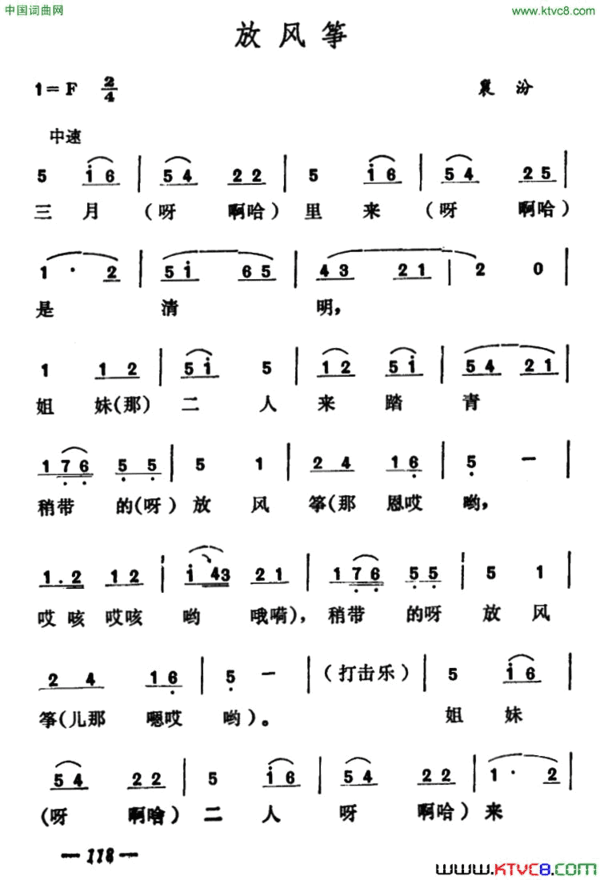 中国词曲网
www.ktvc8.com
放风筝
1=F 2/4
襄汾
中速
5 i 6 | 5 4 2 2 | 5 i 6 | 5 4 2 5 |
三月(呀 啊哈)里来(呀 啊哈)
1 · 2 | 5 i 6 5 | 4 3 2 1 | 2 0
是 清 明，
1 1 2 | 5 i 5 | 1 2 5 i | 5 4 2 1 |
姐 妹(那) 二 人 来 踏 青
1 7 6 5 5 | 5 1 | 2 4 1 6 | 5 —
稍带 的(呀) 放 风 筝(那 恩哎 哟，
1 . 2 1 2 | i 4 3 2 1 | 1 7 6 5 5 | 5 1
哎 咳 哎咳 哟 哦嗬)，稍带 的呀 放 风
2 4 1 6 | 5 — | (打击乐) | 5 i 6 |
筝(儿那 嗯哎 哟)。 姐 妹
5 4 2 2 | 5 i 6 | 5 4 2 2 | 1 · 2 |
(呀 啊啥) 二 人 呀 啊哈) 来
— 118 —
www.KTVC8.com